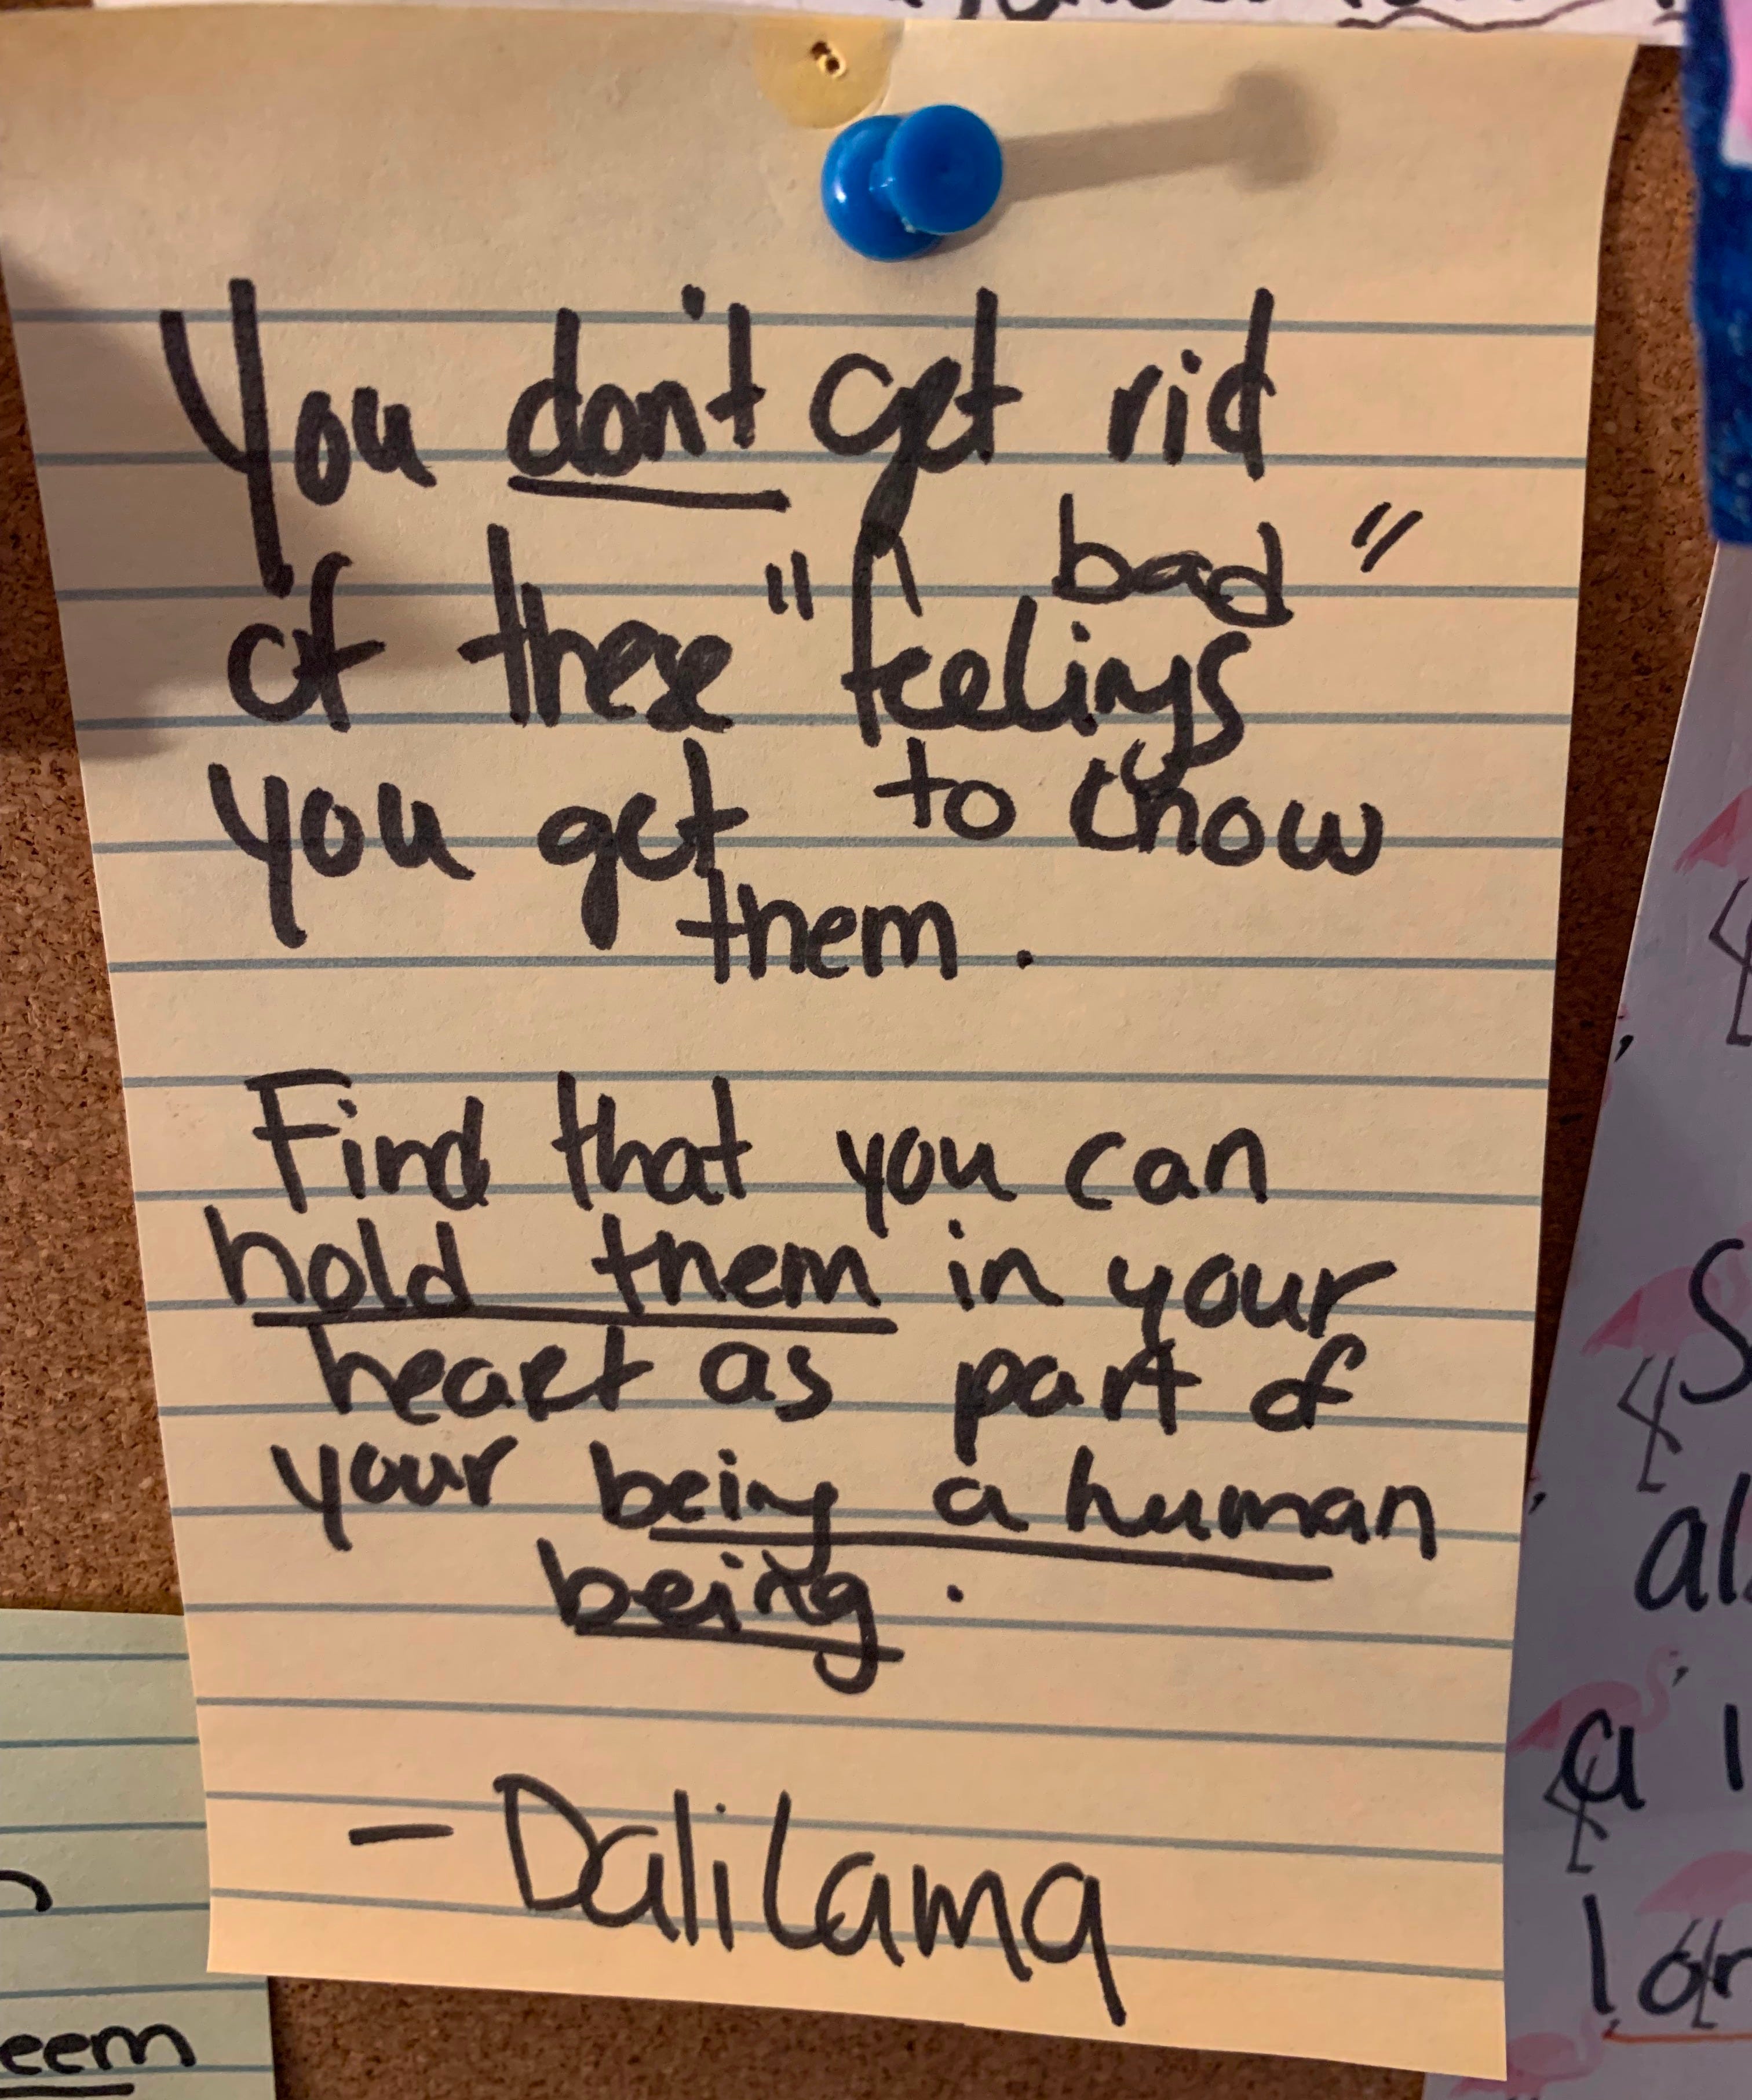 You don't get rid
of these "bad"
feelings
you get to know
them.
Find that you can
hold them in your
heart as part of
your being a human
being.
- Dali Lama
eem
S
al
a
lor